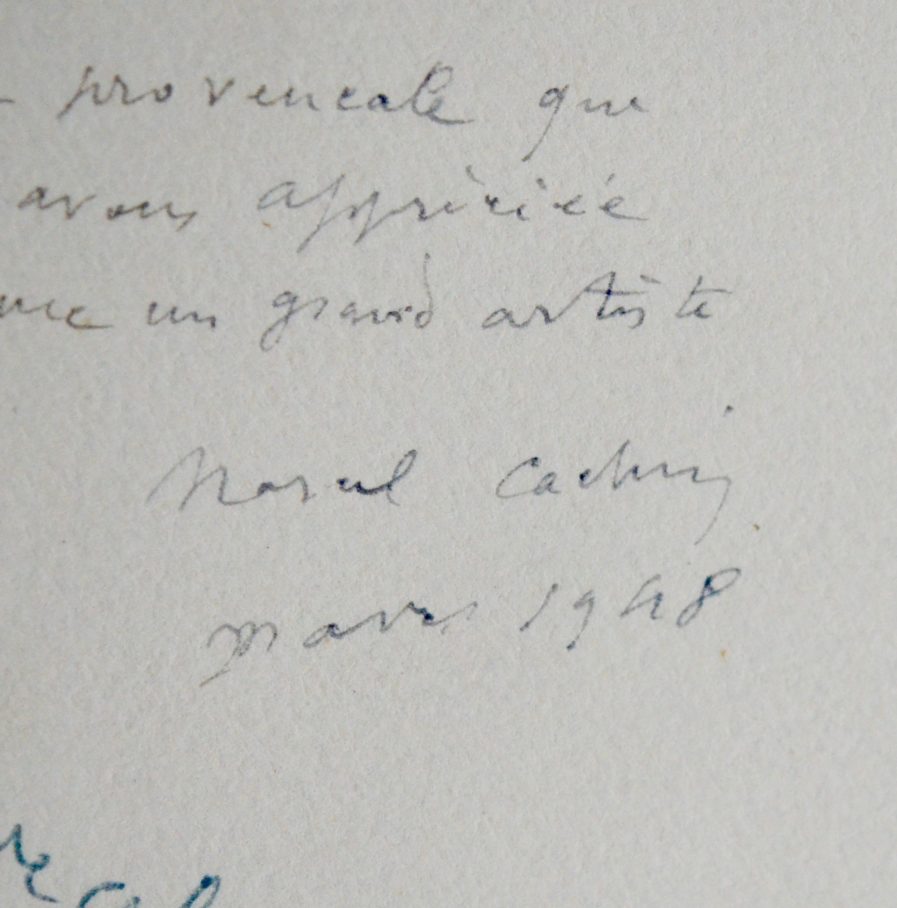 provencale que
avons appréciée
un grand artiste
Marcel Cachin
mars 1948